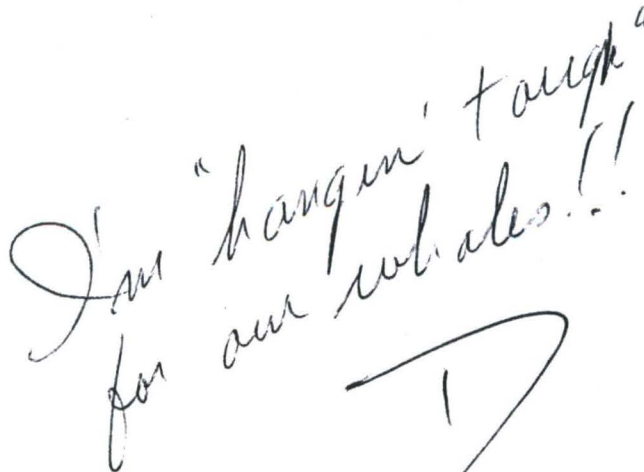 I'm "hangin' tough"
for our whales!!
D